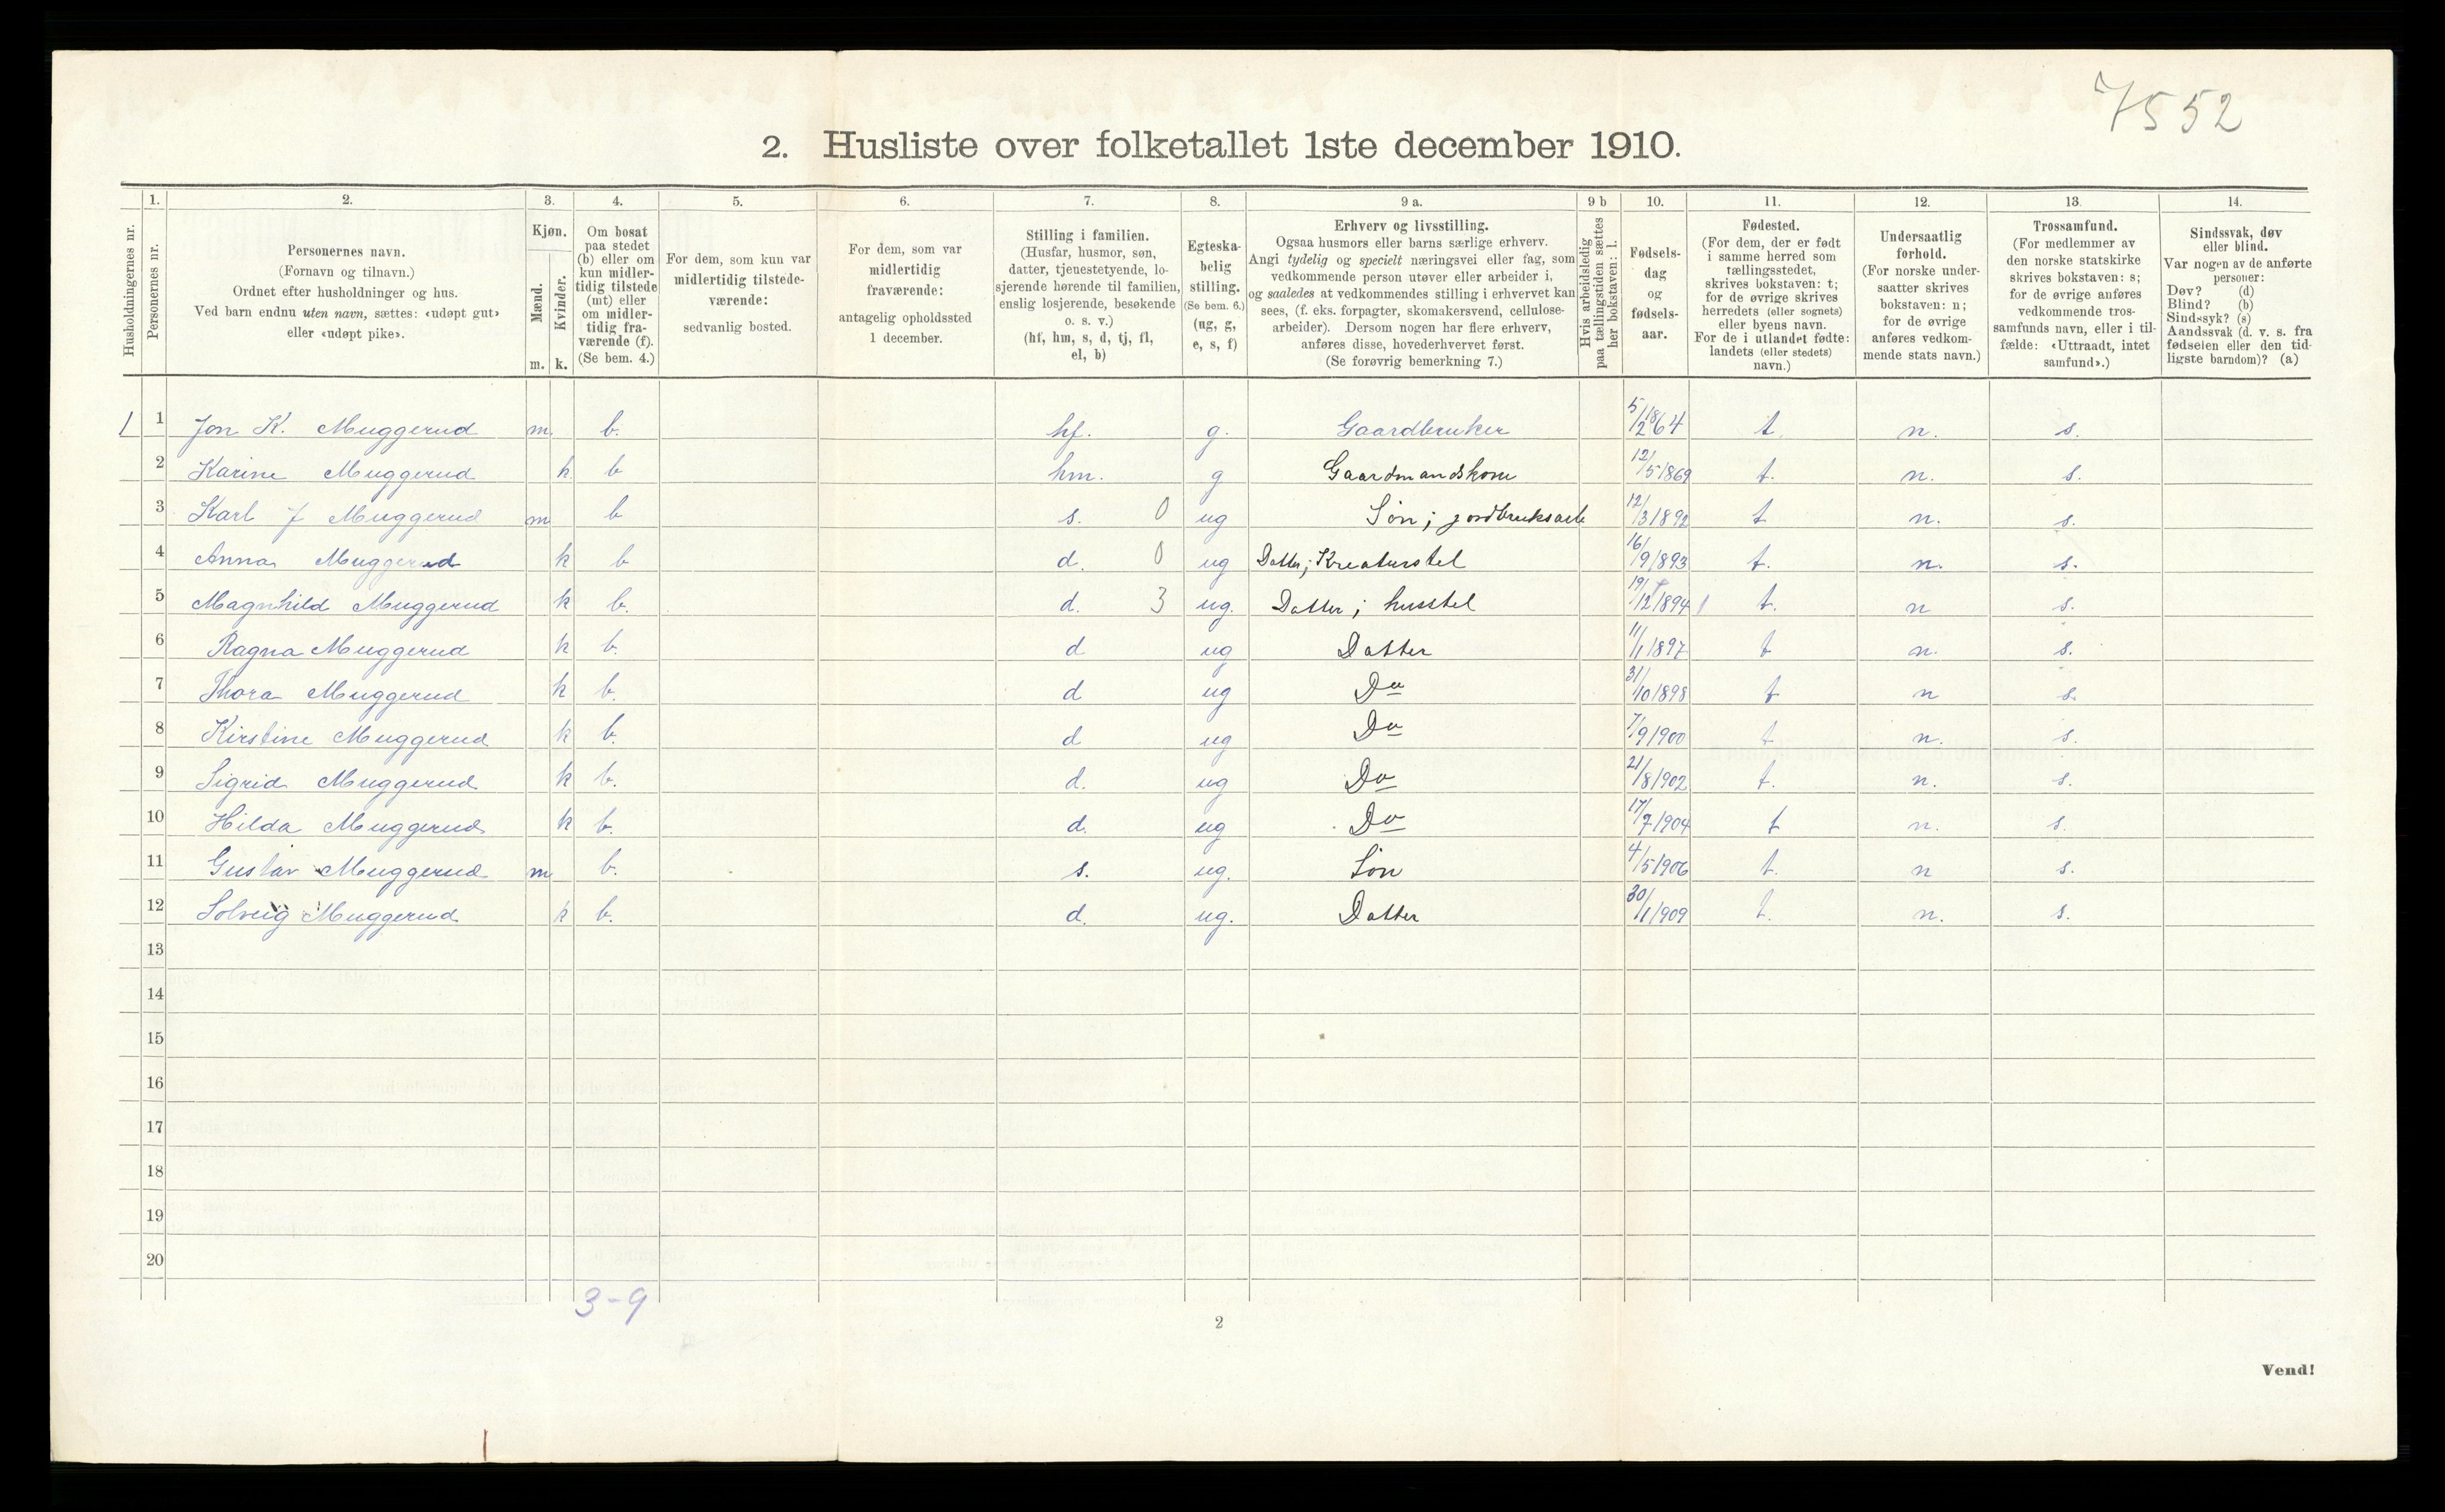 7552
2. Husliste over folketallet 1ste december 1910.
Husholdningernes nr.
1. Personernes nr.
2. Personernes navn.
(Fornavn og tilnavn.)
Ordnet efter husholdninger og hus.
Ved barn endnu uten navn, sættes: «udøpt gut»
eller «udøpt pike».
3. Kjøn.
Mænd. m.
Kvinder. k.
4. Om bosat
paa stedet
(b) eller om
kun midler-
tidig tilstede
(mt) eller
om midler-
tidig fra-
værende (f).
(Se bem. 4.)
5. For dem, som kun var
midlertidig tilstede-
værende:
sedvanlig bosted.
6. For dem, som var
midlertidig
fraværende:
antagelig opholdssted
1 december.
7. Stilling i familien.
(Husfar, husmor, søn,
datter, tjenestetyende, lo-
sjerende hørende til familien,
enslig losjerende, besøkende
o. s. v.)
(hf, hm, s, d, tj, fl,
el, b)
8. Egteska-
belig
stilling.
(Se bem. 6.)
(ug, g,
e, s, f)
9 a. Erhverv og livsstilling.
Ogsaa husmors eller barns særlige erhverv.
Angi tydelig og specielt næringsvei eller fag, som
vedkommende person utøver eller arbeider i,
og saaledes at vedkommendes stilling i erhvervet kan
sees, (f. eks. forpagter, skomakersvend, cellulose-
arbeider). Dersom nogen har flere erhverv,
anføres disse, hovederhvervet først.
(Se forøvrig bemerkning 7.)
9 b Hvis arbeidsledig
paa tællingstiden sættes
her bokstaven: l.
10. Fødsels-
dag
og
fødsels-
aar.
11. Fødested.
(For dem, der er født
i samme herred som
tællingsstedet,
skrives bokstaven: t;
for de øvrige skrives
herredets (eller sognets)
eller byens navn.
For de i utlandet fødte:
landets (eller stedets)
navn.)
12. Undersaatlig
forhold.
(For norske under-
saatter skrives
bokstaven: n;
for de øvrige
anføres vedkom-
mende stats navn.)
13. Trossamfund.
(For medlemmer av
den norske statskirke
skrives bokstaven: s;
for de øvrige anføres
vedkommende tros-
samfunds navn, eller i til-
fælde: «Uttraadt, intet
samfund».)
14. Sindssvak, døv
eller blind.
Var nogen av de anførte
personer:
Døv? (d)
Blind? (b)
Sindssyk? (s)
Aandssvak (d. v. s. fra
fødselen eller den tid-
ligste barndom)? (a)
1 1 Jon K. Muggerud m. b. hf. g. Gaardbruker 5/2 1864 t. n. s.
2 Karine Muggerud k b hm. g Gaardmandskone 12/5 1869 t. n. s.
3 Karl J Muggerud m b s. 0 ug Søn; jordbruksarb 12/3 1892 t n. s.
4 Anna Muggerud k b d. 0 ug Datter; Kreaturstel 16/9 1893 t. n. s.
5 Magnhild Muggerud k b. d. 3 ug. Datter; husstel 19/12 1894 t. n s.
6 Ragna Muggerud k b. d ug Datter 11/1 1897 t n. s.
7 Thora Muggerud k b. d ug Do 31/10 1898 t n s.
8 Kirstine Muggerud k b. d ug Do 7/9 1900 t n. s.
9 Sigrid Muggerud k b. d. ug Do 21/8 1902 t. n. s.
10 Hilda Muggerud k b. d. ug Do 17/7 1904 t n. s.
11 Gustav Muggerud m b. s. ug. Søn 4/5 1906 t. n s.
12 Solveig Muggerud k b. d. ug. Datter 30/1 1909 t. n. s.
13
14
15
16
17
18
19
20
3-9
2
Vend!